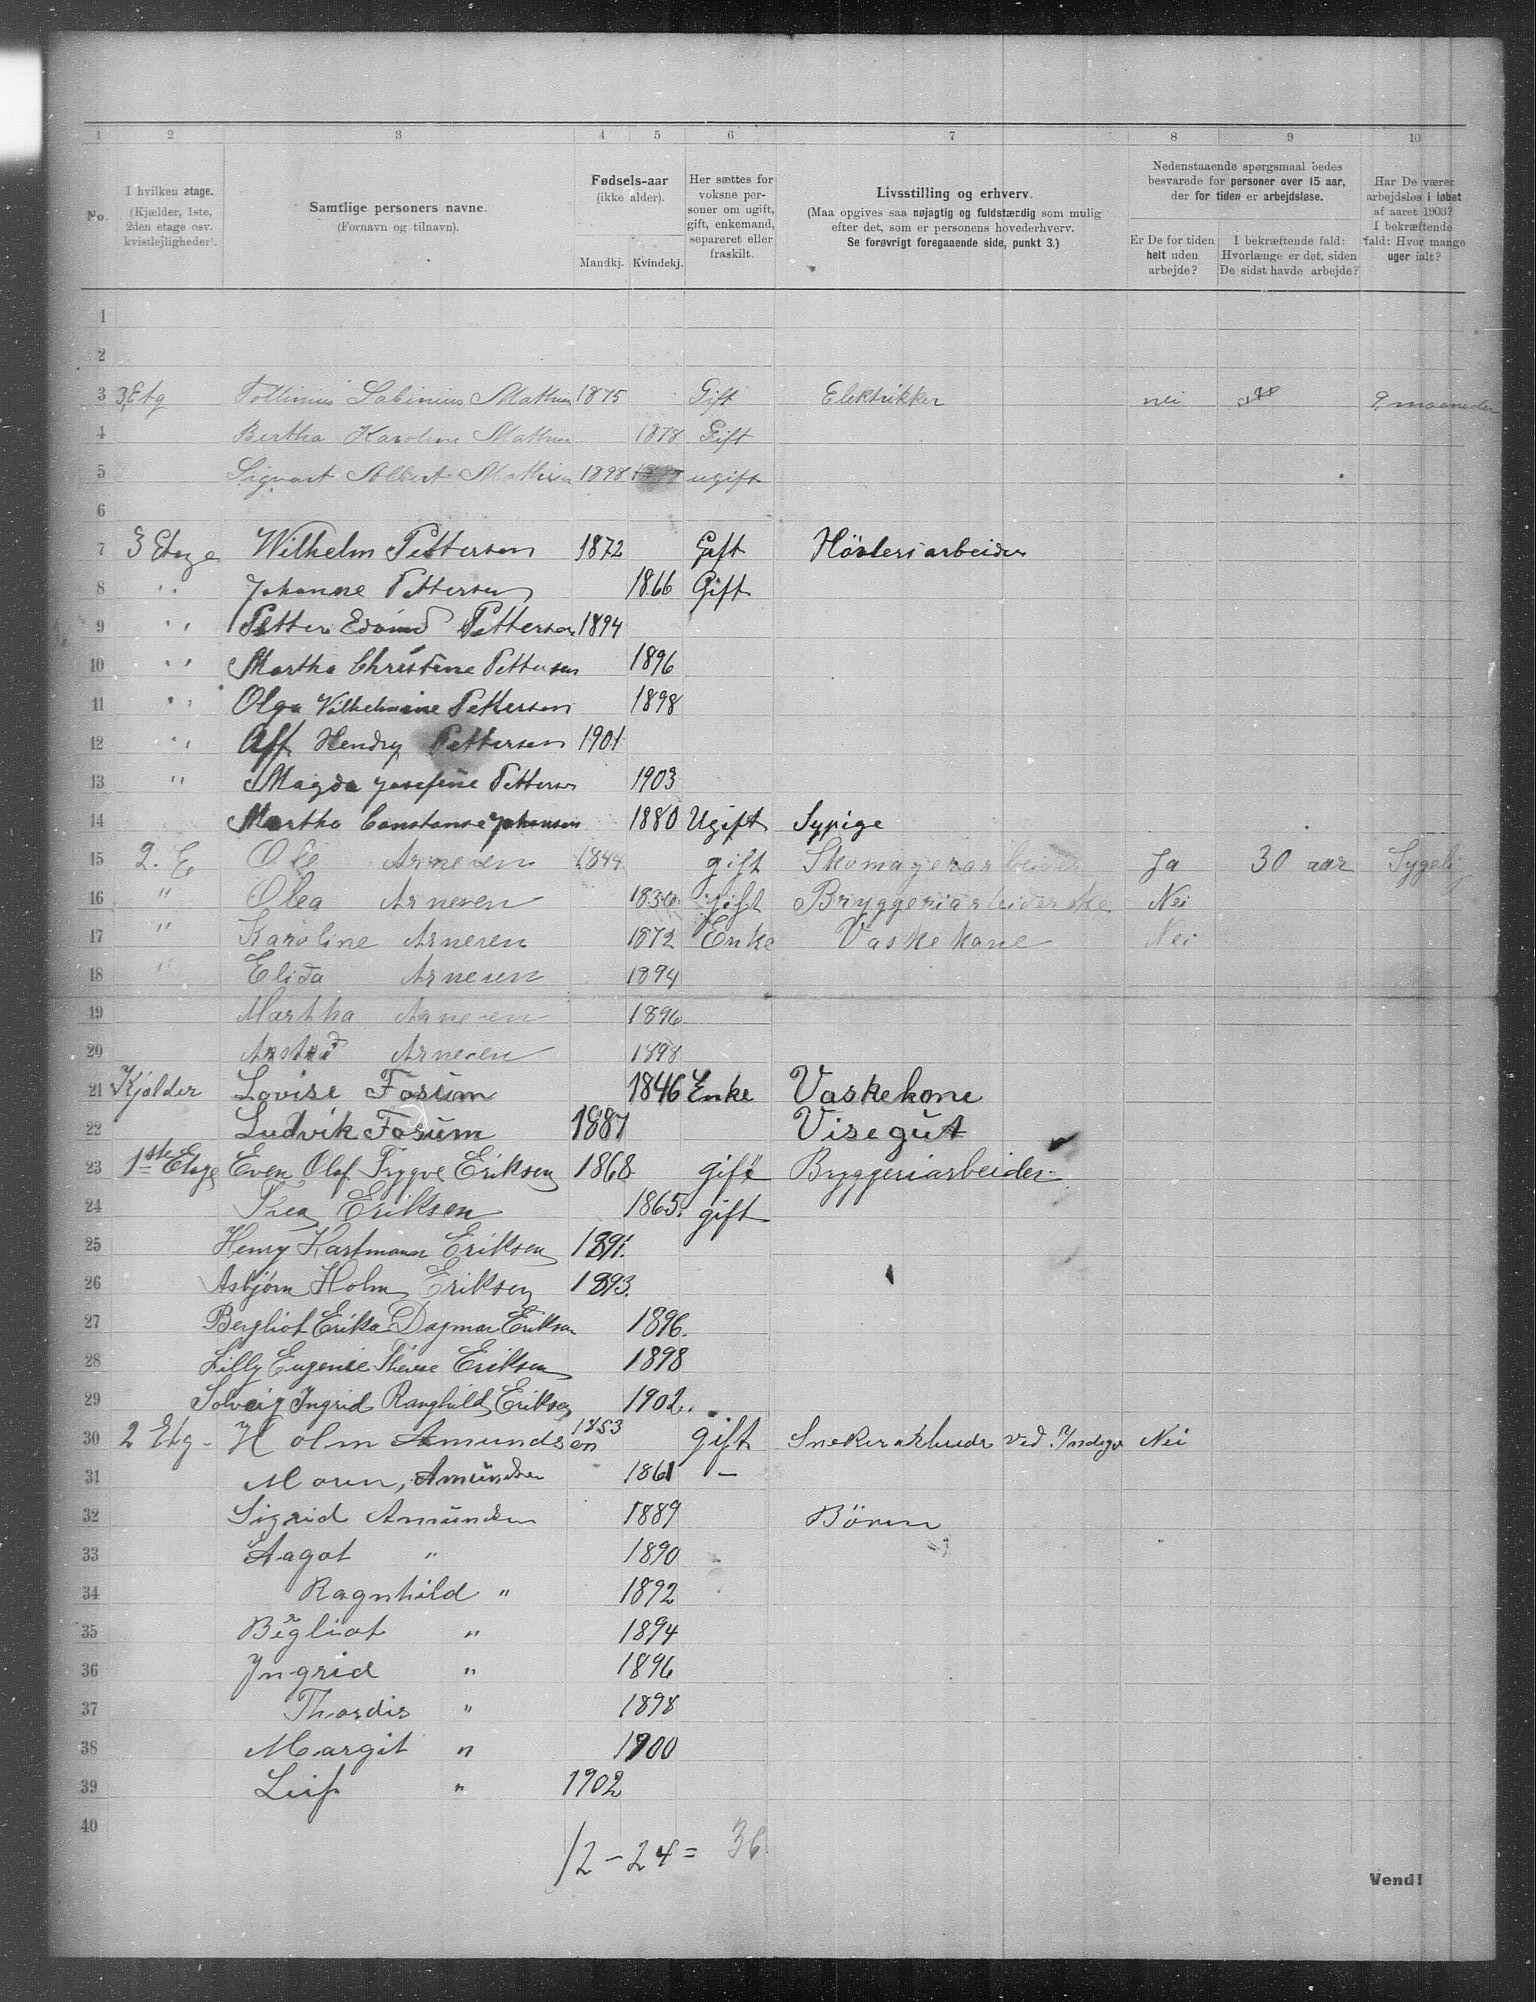 1 2 3 4 5 6 7 8 9 10
No.
I hvilken etage.
(Kjælder, 1ste,
2den etage osv.
kvistlejligheder).
Samtlige personers navne.
(Fornavn og tilnavn).
Fødsels-aar
(ikke alder).
Mandkj. Kvindekj.
Her sættes for
voksne per-
soner om ugift,
gift, enkemand,
separeret eller
fraskilt.
Livsstilling og erhverv.
(Maa opgives saa nøjagtig og fuldstændig som mulig
efter det, som er personens hovederhverv.
Se forøvrigt foregaaende side, punkt 3.)
Nedenstaaende spørgsmaal bedes
besvarede for personer over 15 aar,
der for tiden er arbejdsløse.
Er De for tiden
helt uden
arbejde?
I bekræftende fald:
Hvorlænge er det, siden
De sidst havde arbejde?
Har De været
arbejdsløs i løbet
af aaret 1903?
I bekræftende
fald: Hvor mange
uger ialt?
1
2
3 3 Etg Sabinius 1875 Gift Elektrikker nei 9 maaneder
4 Bertha Karoline 1878 Gift
5 Sigvart Albert Mathisen 1898 ugift
6
7 3 Etage Wilhelm Pettersen 1872 Gift
8 " Johanne Pettersen 1866 Gift
9 " Petter Edvind Pettersen 1894
10 " Martha Christine Pettersen 1896
11 " Olga Vilhelmine Pettersen 1898
12 " Alf Hendry Pettersen 1901
13 " Magda Josefine Petterse 1903
14 Martha Constanse Johansen 1880 Ugift Sypige
15 2. E Ole Arnesen 1844 gift Skomagerarbeider Ja 30 aar Sygelig
16 " Olea Arnesen 1836 gift Bryggeriarbeiderske Nei
17 " Karoline Arnesen 1872 Enke Vaskekone Nei
18 " Elida Arnesen 1894
19 Martha Arnesen 1896
20 Arnesen 1898
21 Kjelder Lovise Fosum 1846 Enke Vaskekone
22 Ludvik Fosum 1887 Visegut
23 1ste Etage Even Olaf Trygve Eriksen 1868 gift Bryggeriarbeider
24 Thea Eriksen 1865. gift
25 Henry Hartmann Eriksen 1891.
26 Asbjørn Holm Eriksen 1893.
27 Bergliot Erika Dagmar Eriksen 1896.
28 Lilly Eugenie Therese Eriksen 1898
29 Solveig Ingrid Ranghild Eriksen 1902.
30 2 Etg. Holm Amundsen 1853 gift ved Nei
31 Maren, Amundsen 1861 –
32 Sigrid Amundsen 1889 Børen
33 Aagot " 1890
34 Ragnhild " 1892
35 Bergliot " 1894
36 Ingrid " 1896
37 Thordis " 1898
38 Margit " 1900
39 Leif " 1902
40
12 – 24 = 36
Vend!